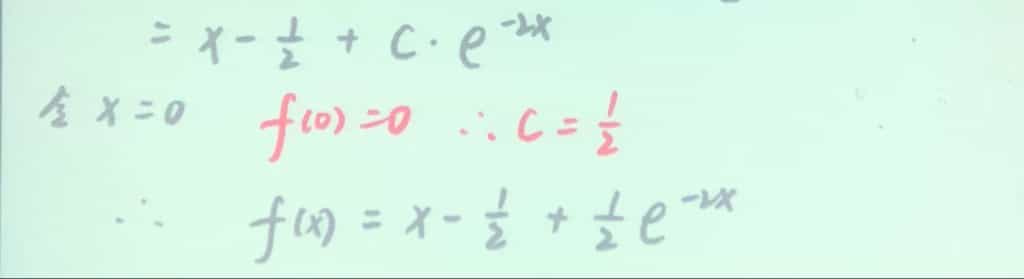 = x - 1/2 + C · e^{-2x}
令 x = 0 f(0) = 0 ∴ C = 1/2
∴ f(x) = x - 1/2 + 1/2 e^{-2x}